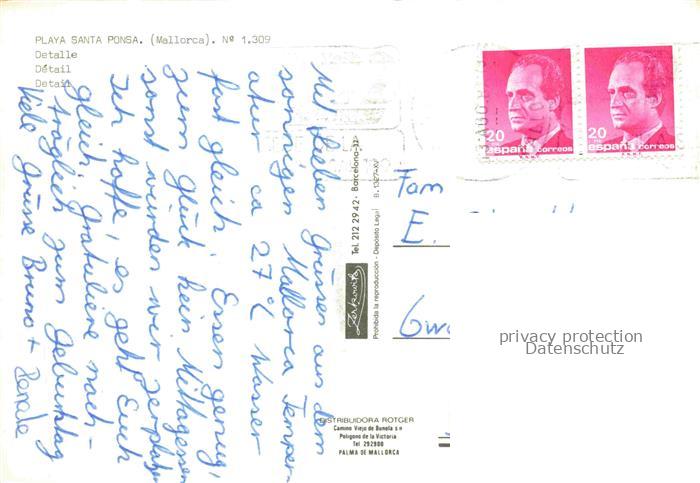 PLAYA SANTA PONSA. (Mallorca). Nº 1.309
Detalle
Détail
Detail
Mit lieben Grüssen aus dem
sonnigen Mallorca Temper-
atur ca 27°C Wasser
fast gleich. Essen genug,
zum Glück kein Mittagessen
sonst würden wir zerplatzen
Ich hoffe, es geht Euch
gleich. Gratuliere nach-
träglich zum Geburtstag
Viele Grüsse Bruno +
Zerkowitz
Tel. 212 29 42 - Barcelona-12
Prohibida la reproducción - Depósito Legal B. 13427-XV
20 españa correos
20 españa correos
Fam
E.
Gw
privacy protection
Datenschutz
DISTRIBUIDORA ROTGER
Camino Viejo de Buñola s n
Polígono de la Victoria
Tel 292900
PALMA DE MALLORCA